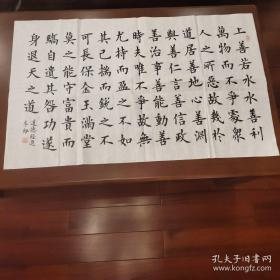 上善若水水善利
萬物而不爭處衆
人之所惡故幾於
道居善地心善淵
與善仁言善信政
善治事善能動善
時夫唯不爭故無
尤持而盈之不如
其已揣而銳之不
可長保金玉滿堂
莫之能守富貴而
驕自遺其咎功遂
身退天之道
道德經選
孔夫子旧书网